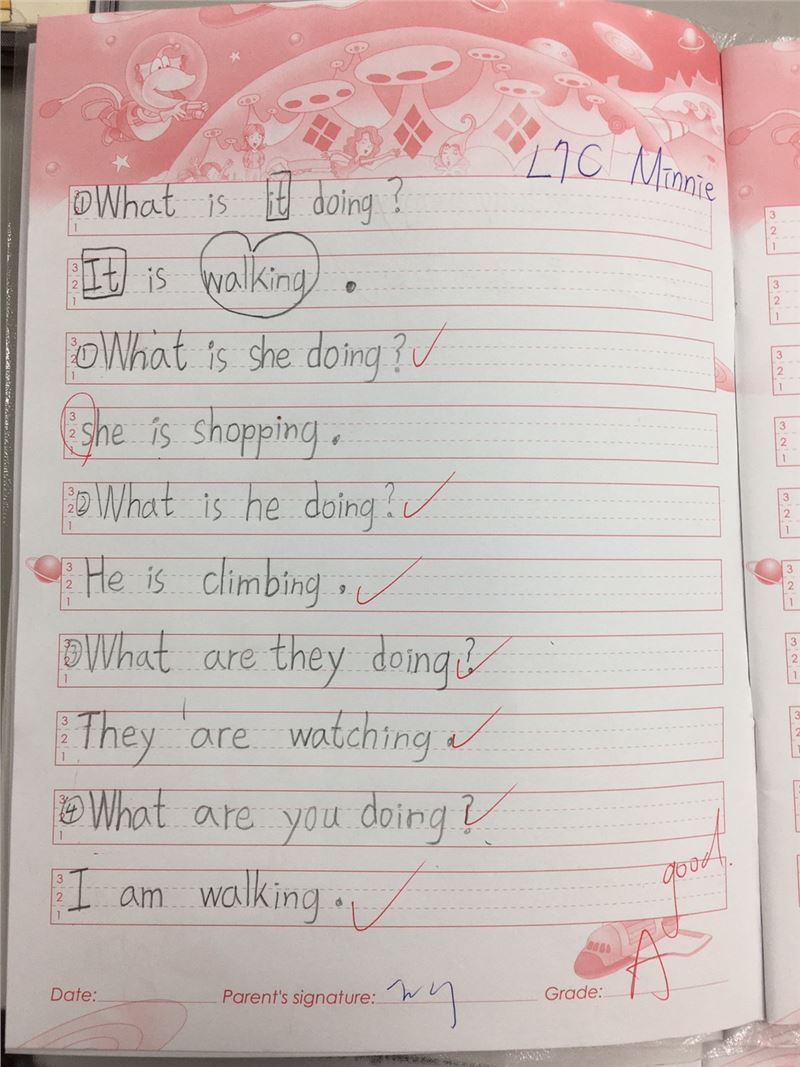 L7C Minnie
①What is it doing?
It is walking.
①What is she doing?
she is shopping.
②What is he doing?
He is climbing.
③What are they doing?
They are watching.
④What are you doing?
I am walking.
good.
A
Date: Parent's signature: Grade: